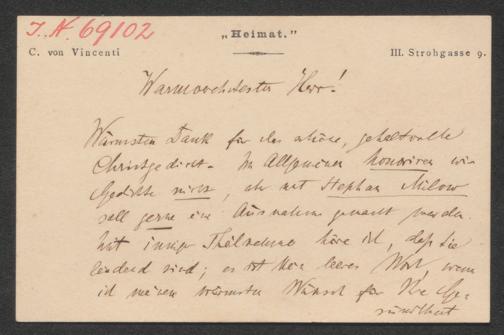 J.N. 69102
„Heimat."
C. von Vincenti
III. Strohgasse 9.
Warmverehrtester Herr!
Wärmsten Dank für das schöne, gehaltvolle
Christgedicht. Im Allgemeinen honoriren wir
Gedichte nicht, aber mit Stephan Milow
soll gerne eine Ausnahme gemacht werden.
Mit inniger Theilnahme höre ich, daß Sie
leidend sind; es ist kein leeres Wort, wenn
ich meinen wärmsten Wunsch für Ihre Ge-
sundheit